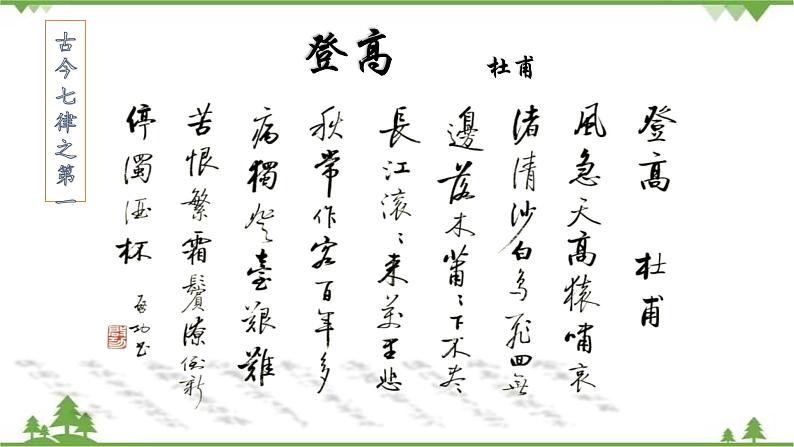 古今七律之第一
登高 杜甫
登高 杜甫
風急天高猿嘯哀
渚清沙白鳥飛回無
邊落木蕭〻下不盡
長江滾〻来萬里悲
秋常作客百年多
病獨登臺艱難
苦恨繁霜鬢潦倒新
停濁酒杯
啟功书